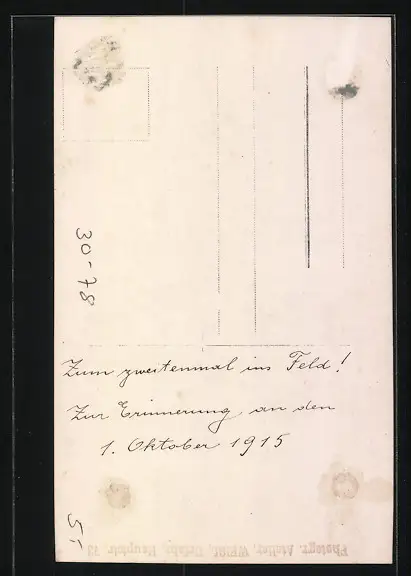 30-78
Zum zweitenmal ins Feld!
Zur Erinnerung an den
1. Oktober 1915
5,-
Photogr. Atelier,